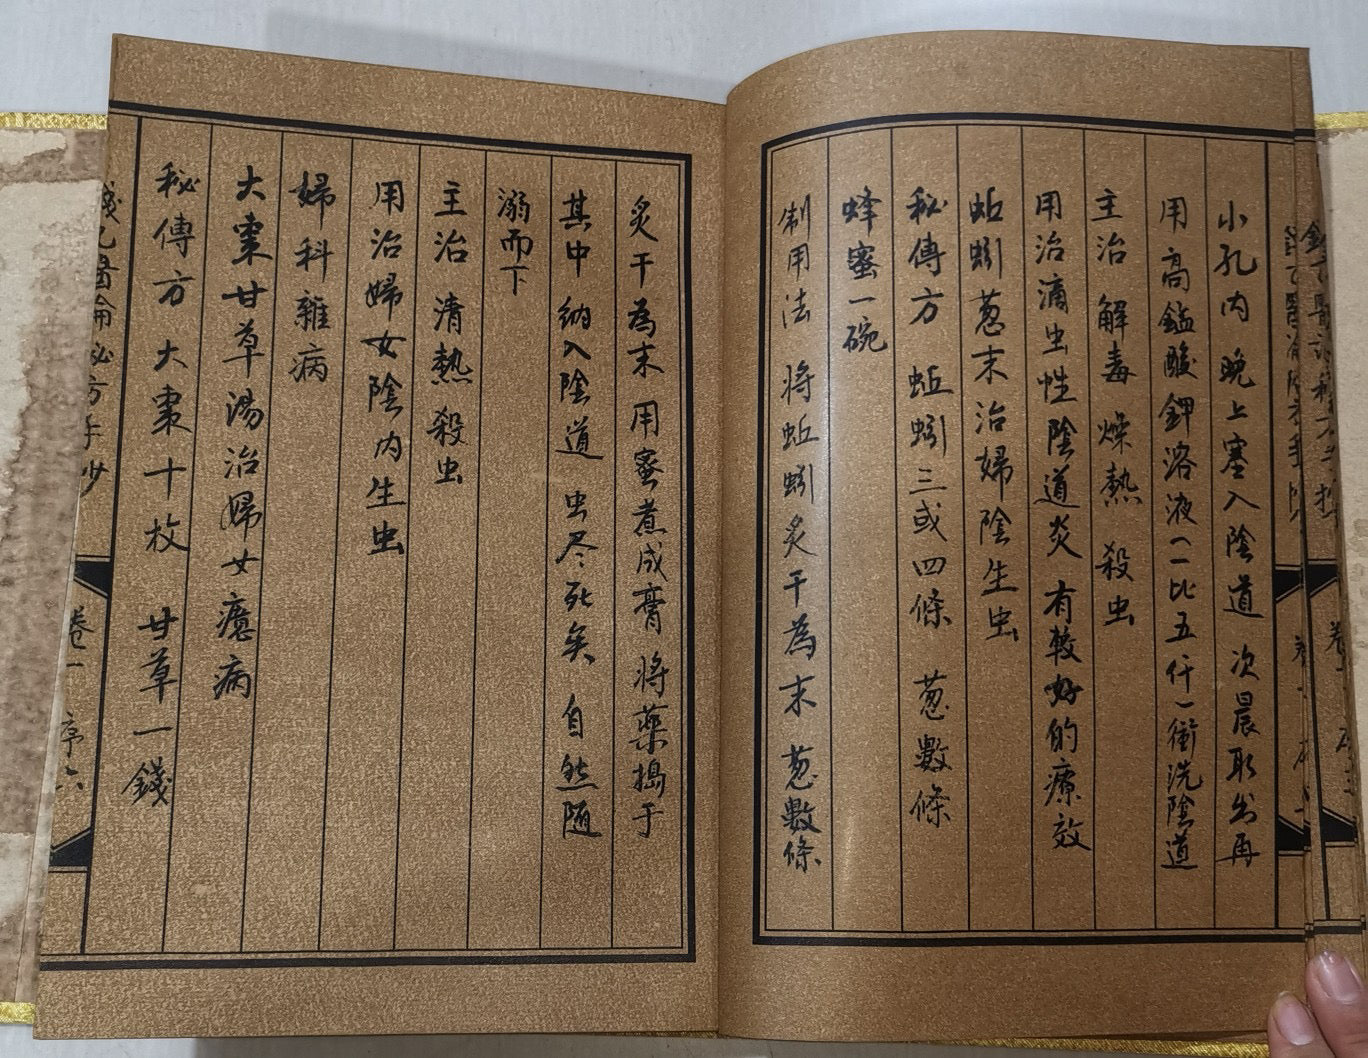 小孔内 晚上塞入陰道 次晨取出再
用高錳酸鉀溶液(一比五仟)衝洗陰道
主治 解毒 燥熱 殺虫
用治滴虫性陰道炎 有較好的療效
蚯蚓葱末治婦陰生虫
秘傳方 蚯蚓三或四條 葱數條
蜂蜜一碗
制用法 將蚯蚓炙干為末 葱數條
炙干為末 用蜜煮成膏 將藥搗于
其中 納入陰道 虫尽死矣 自然随
溺而下
主治 清熱 殺虫
用治婦女陰内生虫
婦科雜病
大棗甘草湯治婦女癔病
秘傳方 大棗十枚 甘草一錢
卷一 序六